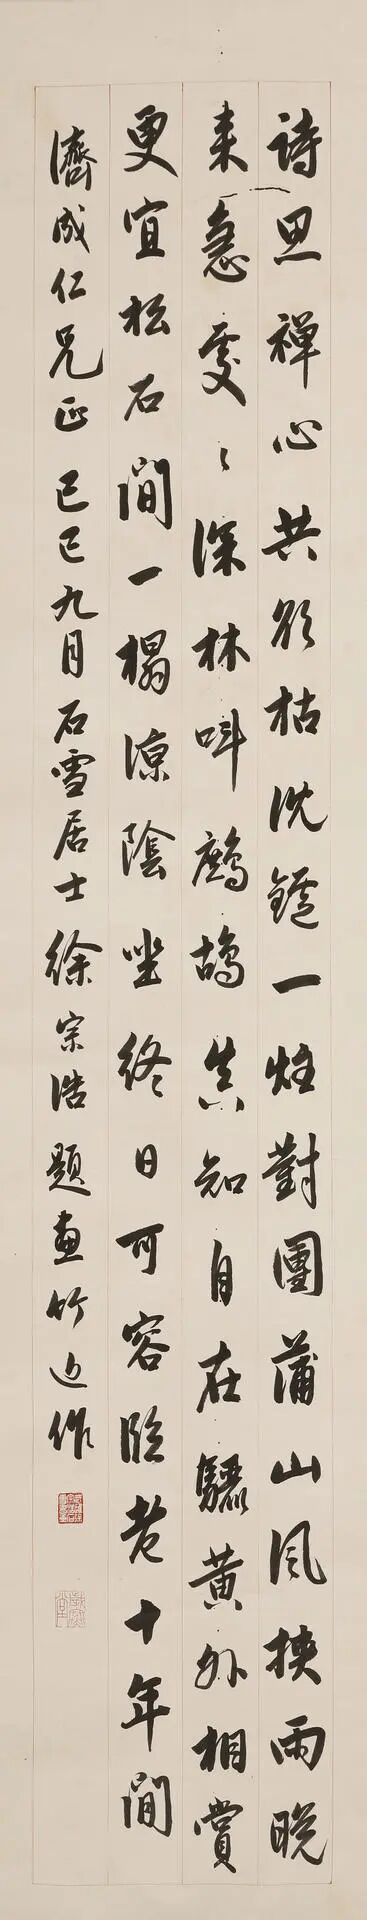 詩思禪心共欲枯沈鑪一炷對團蒲山風挾雨晚
来急處〻深林呌鷓鴣真知自在驪黃外相賞
更宜松石間一榻涼陰坐終日可容臨老十年閒
濟成仁兄正 己巳九月石雪居士徐宗浩題畫竹近作